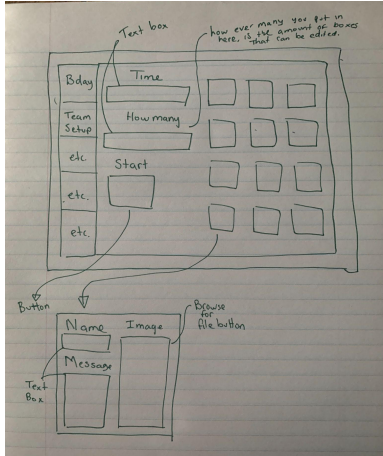 Text box
how ever many you put in
here, is the amount of boxes
that can be edited.
Bday
Time
Team
Setup
How many
etc.
Start
etc.
etc.
Button
Name
Image
Browse
for
file button
Message
Text
Box